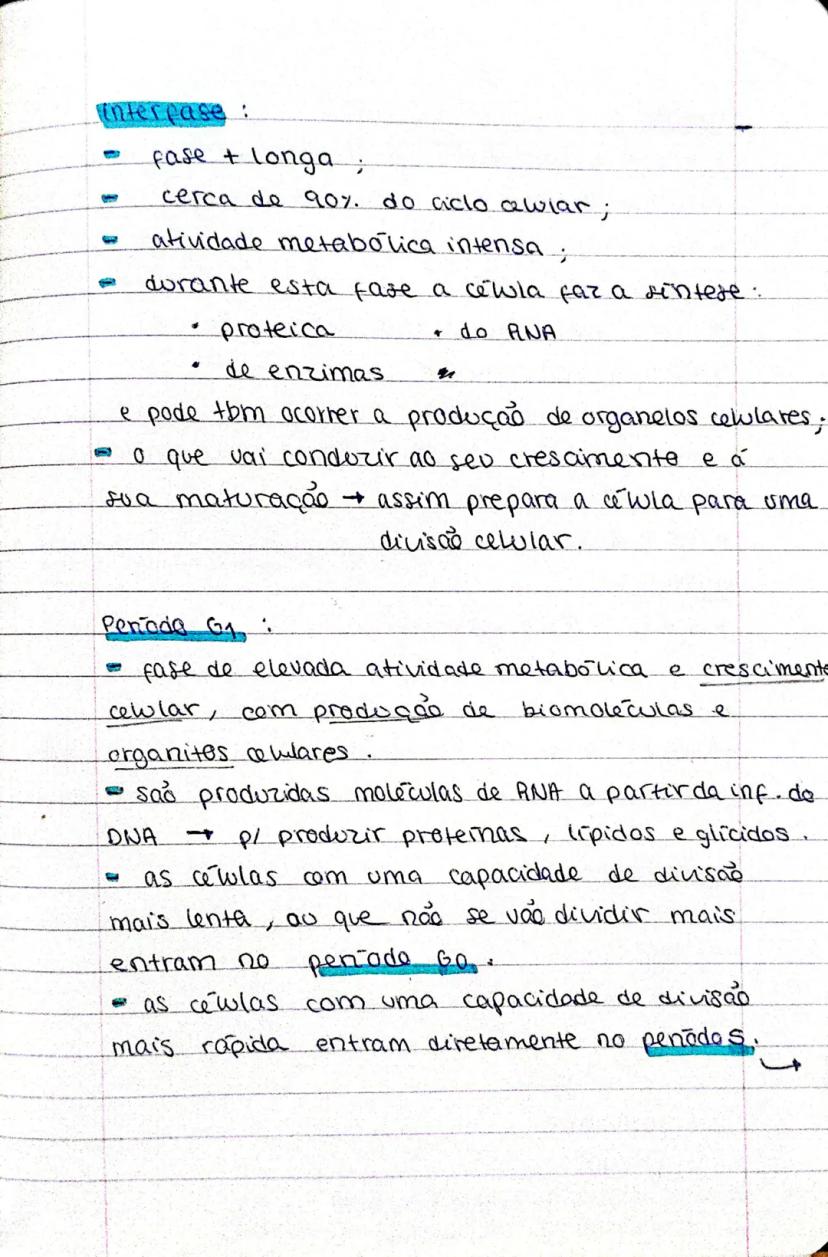 Interfase :
- fase + longa ;
- cerca de 90% do ciclo celular ;
- atividade metabólica intensa ;
- durante esta fase a célula faz a síntese :
• proteica • do RNA
• de enzimas
e pode tbm ocorrer a produção de organelos celulares ;
- o que vai conduzir ao seu crescimento e á
sua maturação → assim prepara a célula para uma
divisão celular.
Período G1 :
- fase de elevada atividade metabólica e crescimento
celular, com produção de biomoléculas e
organitos celulares .
- são produzidas moléculas de RNA a partir da inf. do
DNA → p/ produzir proteínas , lípidos e glícidos .
- as células com uma capacidade de divisão
mais lenta , ou que não se vão dividir mais
entram no período G0 .
- as células com uma capacidade de divisão
mais rápida entram diretamente no período S. →